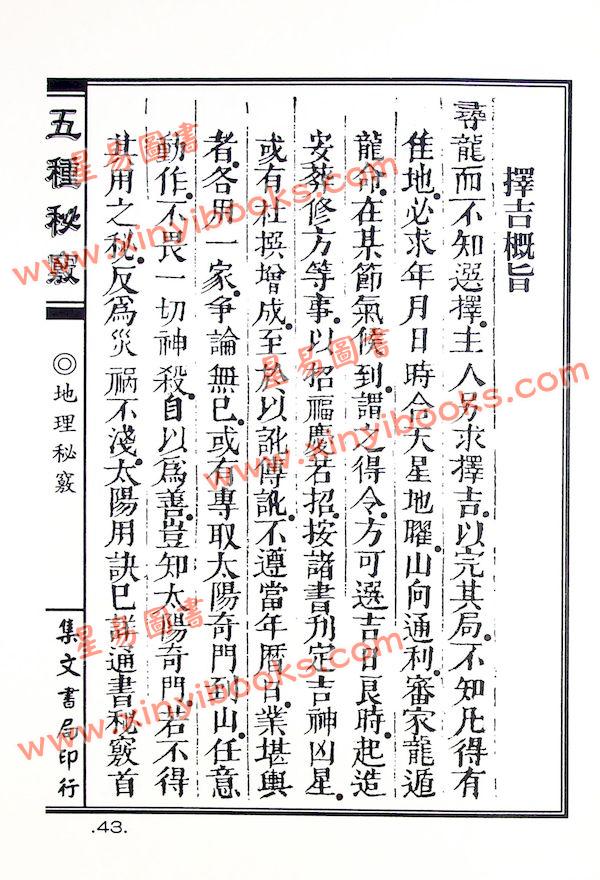 擇吉概旨
尋龍而不知選擇主人另求擇吉以完其局不知凡得有
佳地必求年月日時合天星地曜山向通利審家龍遁
龍命在某節氣候到謂之得令方可選吉日良時起造
安葬修方等事以招福慶若招按諸書刋定吉神凶星
或有杜撰增成至於以訛傳訛不遵當年曆日業堪輿
者各用一家爭論無已或有專取太陽奇門到山任意
動作不畏一切神殺自以爲善豈知太陽奇門若不得
其用之秘反爲災禍不淺太陽用訣已詳通書秘竅首
五種秘竅
◎地理秘竅
集文書局印行
.43.
星易圖書
www.xinyibooks.com
星易圖書
www.xinyibooks.com
星易圖書
www.xinyibooks.com